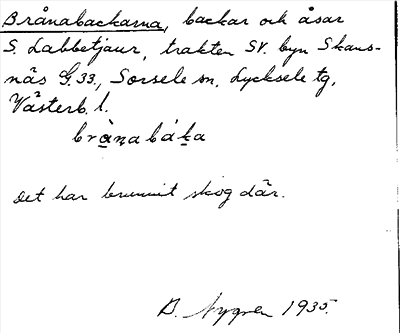 Brånabackarna, backar och åsar
S. Labbetjaur, trakten SV. byn Skans-
näs G.33, Sorsele sn, Lycksele tg,
Västerb. l.
brå̀nabáka
Det har brunnit skog där.
B. Nygren 1935.